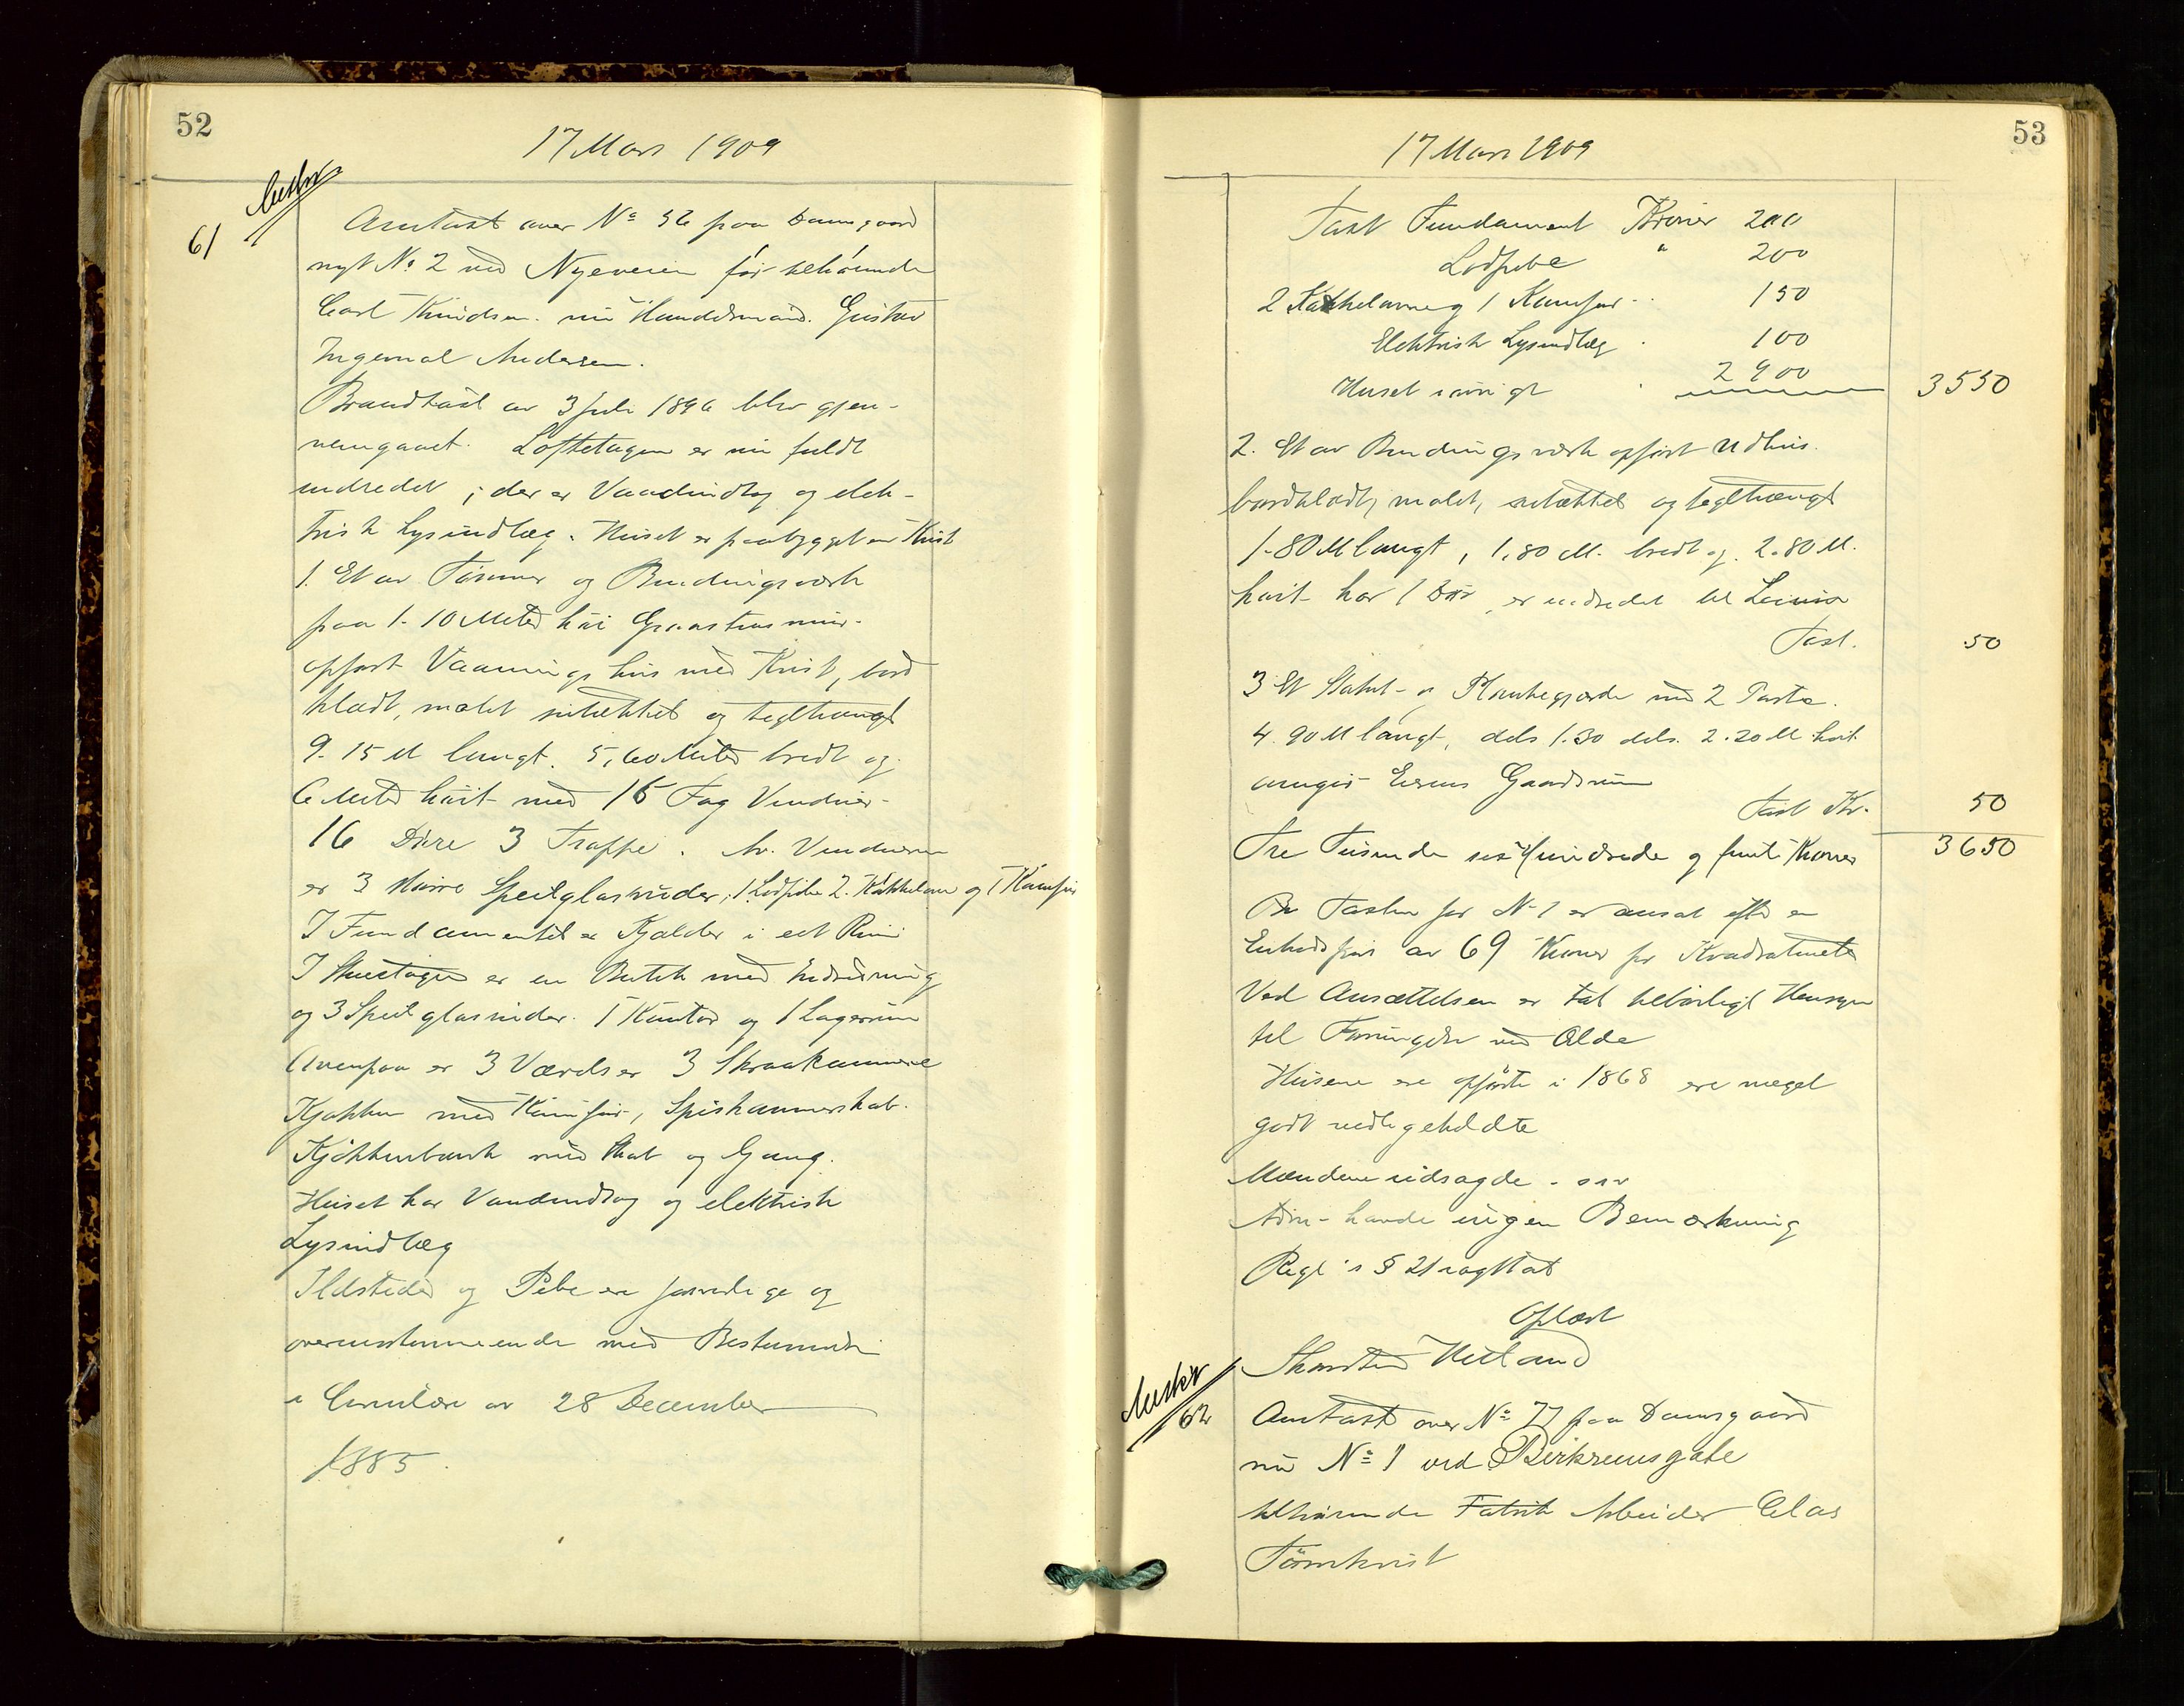 52
17 Mars 1909
61
Omtaxt over No 56 paa Damsgaard
nyt No 2 ved Nyeveien før tilhørende
Carl Knudsen. nu Handelsmand. Gustav
Ingemal Andersen.
Brandtaxt av 3 Juli 1896 blev gjen-
nemgaaet. Loftetagen er nu fuldt
indredet; der er Vandindlæg og elek-
trisk Lysindlæg. Huset er paabygget en Kvist
1. Et av Tømmer og Bindingsværk
paa 1.10 Meter høi Graastensmur
opført Vaaningshus med Kvist, bord
klædt, malet sutækket og teglhængt
9.15 M langt. 5,60 Meter bredt og
6 Meter høit med 15 Fag Vinduer
16 Døre 3 Trappe. Av Vinduerne
er 3 større Speilglasruder; 1 Lodpibe 2. Kakkelovn og 1 Komfur
I Fundamentet er Kjælder i eet Rum
I Stuetagen er en Butik med Indredning
og 3 Speilglasruder. 1 Kontor og 1 Lagerrum
Ovenpaa er 3 Værelser 3 Skraakammere
Kjøkken med Komfur, Spiskammerskab.
Kjøkkenbænk med Skab og Gang.
Huset har Vandindlæg og elektrisk
Lysindlæg
Ildsteder og Pibe ere forsvarlige og
overensstemmende med Bestemmelse
i Cirkulære av 28 December
1885.
53
17 Mars 1909
Taxt Fundament Kroner 200
Lodpibe " 200
2 Kakkelovne og 1 Komfur 150
Elektrisk Lysindlæg 100
Huset iøvrigt 2900 3550
2. Et av Bindingsværk opført Udhus.
bordklædt, malet, sutækket og teglhængt
1.80 M langt, 1.80 M. bredt og 2.80 M.
høit har 1 Dør, er indredet til
Taxt. 50
3 Et Stakit- og Plankegjærde med 2 Porte.
4.90 M langt, dels 1.30 dels. 2.20 M høit
omgir Eierens Gaardsrum
Taxt Kr. 50
Tre Tusinde sex Hundrede og femti Kroner 3650
Taxten for No 1 er ansat efter en
Enhedspris av 69 Kroner pr Kvadratmeter
Ved Ansættelsen er tat tilbørligt Hensyn
til Forringelse ved Ælde
Husene ere opførte i 1868 ere meget
godt vedligeholdte
Mændene udsagde
havde ingen Bemærkning
Regl's § 21 iagttat
Oplæst
62
Omtaxt over No 77 paa Damsgaard
nu No 1 ved Birkremsgate
tilhørende Fabrik Arbeider Claes
Törnkvist